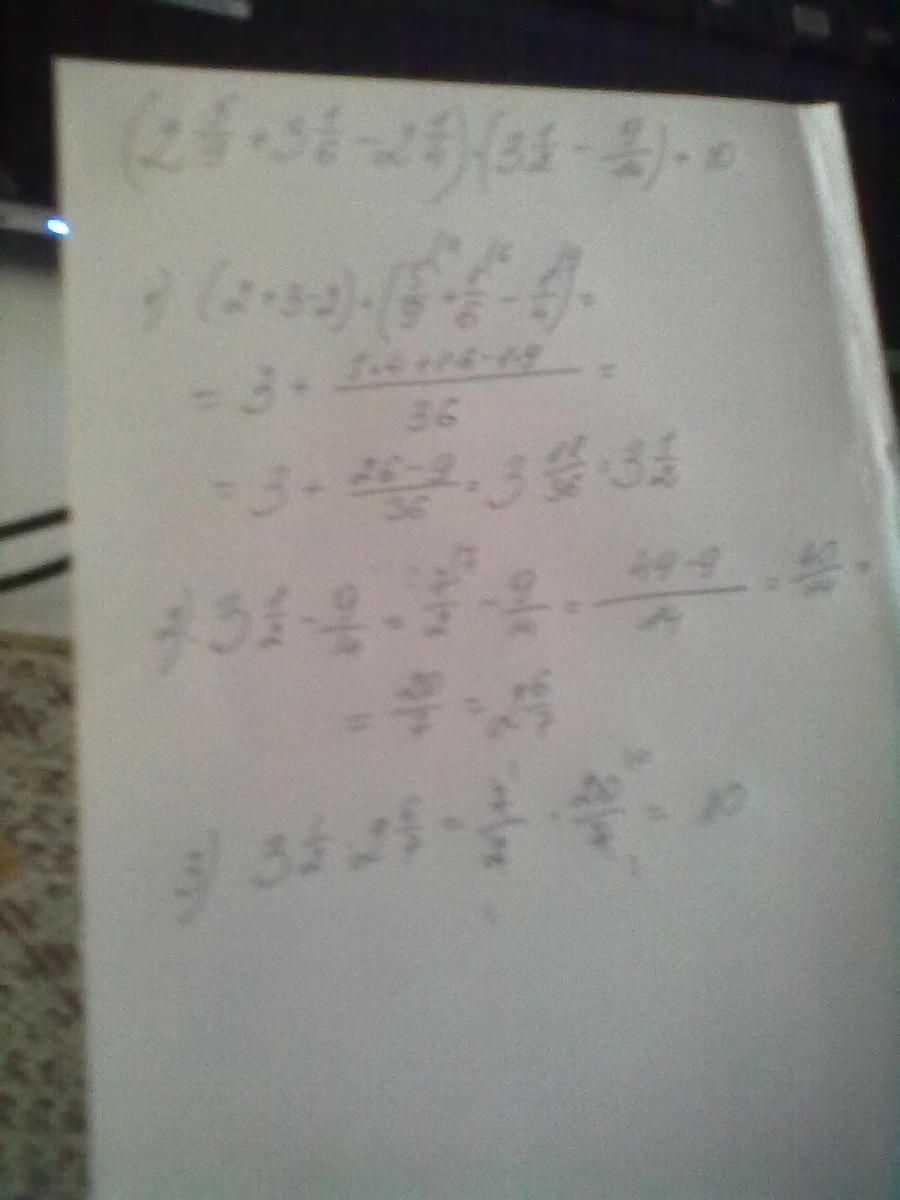 (2 5/9 + 3 1/6 − 2 1/4) · (3 1/2 − 9/14) = 10
1) (2+3−2) + (5/9 + 1/6 − 1/4) =
= 3 + /36 =
= 3 + 26−9/36 = 3 = 3 1/2
2) 3 1/2 − 9/14 = 7/2 − 9/14 = 49−9/14 = 40/14 =
= 20/7 = 2 6/7
3) 3 1/2 · 2 6/7 = 7/2 · 20/7 = 10